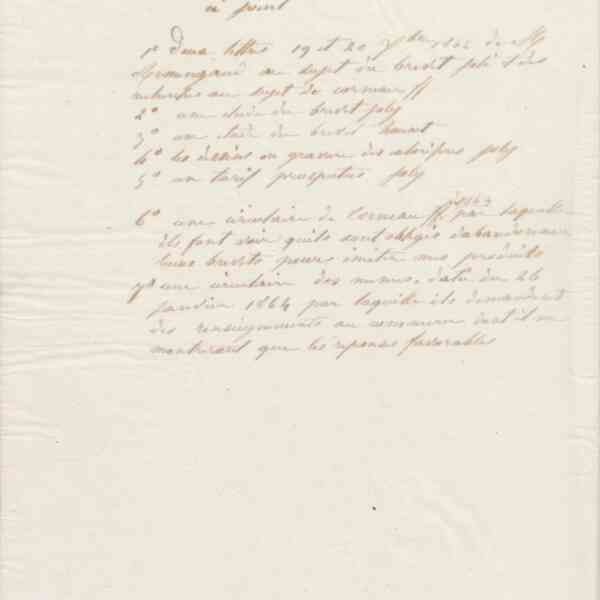 à point
1º Deux lettres 19 et 20 Xbre 1862 de Mr
au sujet du brevet joli et des
recherches au sujet de corneau ff
2º une étude du brevet joly
3º une étude du brevet
4º les dessins ou gravure des calorifères joly
5º un tarif prospectus joly
6º une circulaire de Corneau ff 1863 par laquelle
ils font voir quils sont obligés dabandonner
leurs brevets pour imiter mes produits
7º une circulaire des mêmes, datée du 26
janvier 1864 par laquelle ils demandent
des renseignements au commerce dont il ne
montreront que les réponses favorables